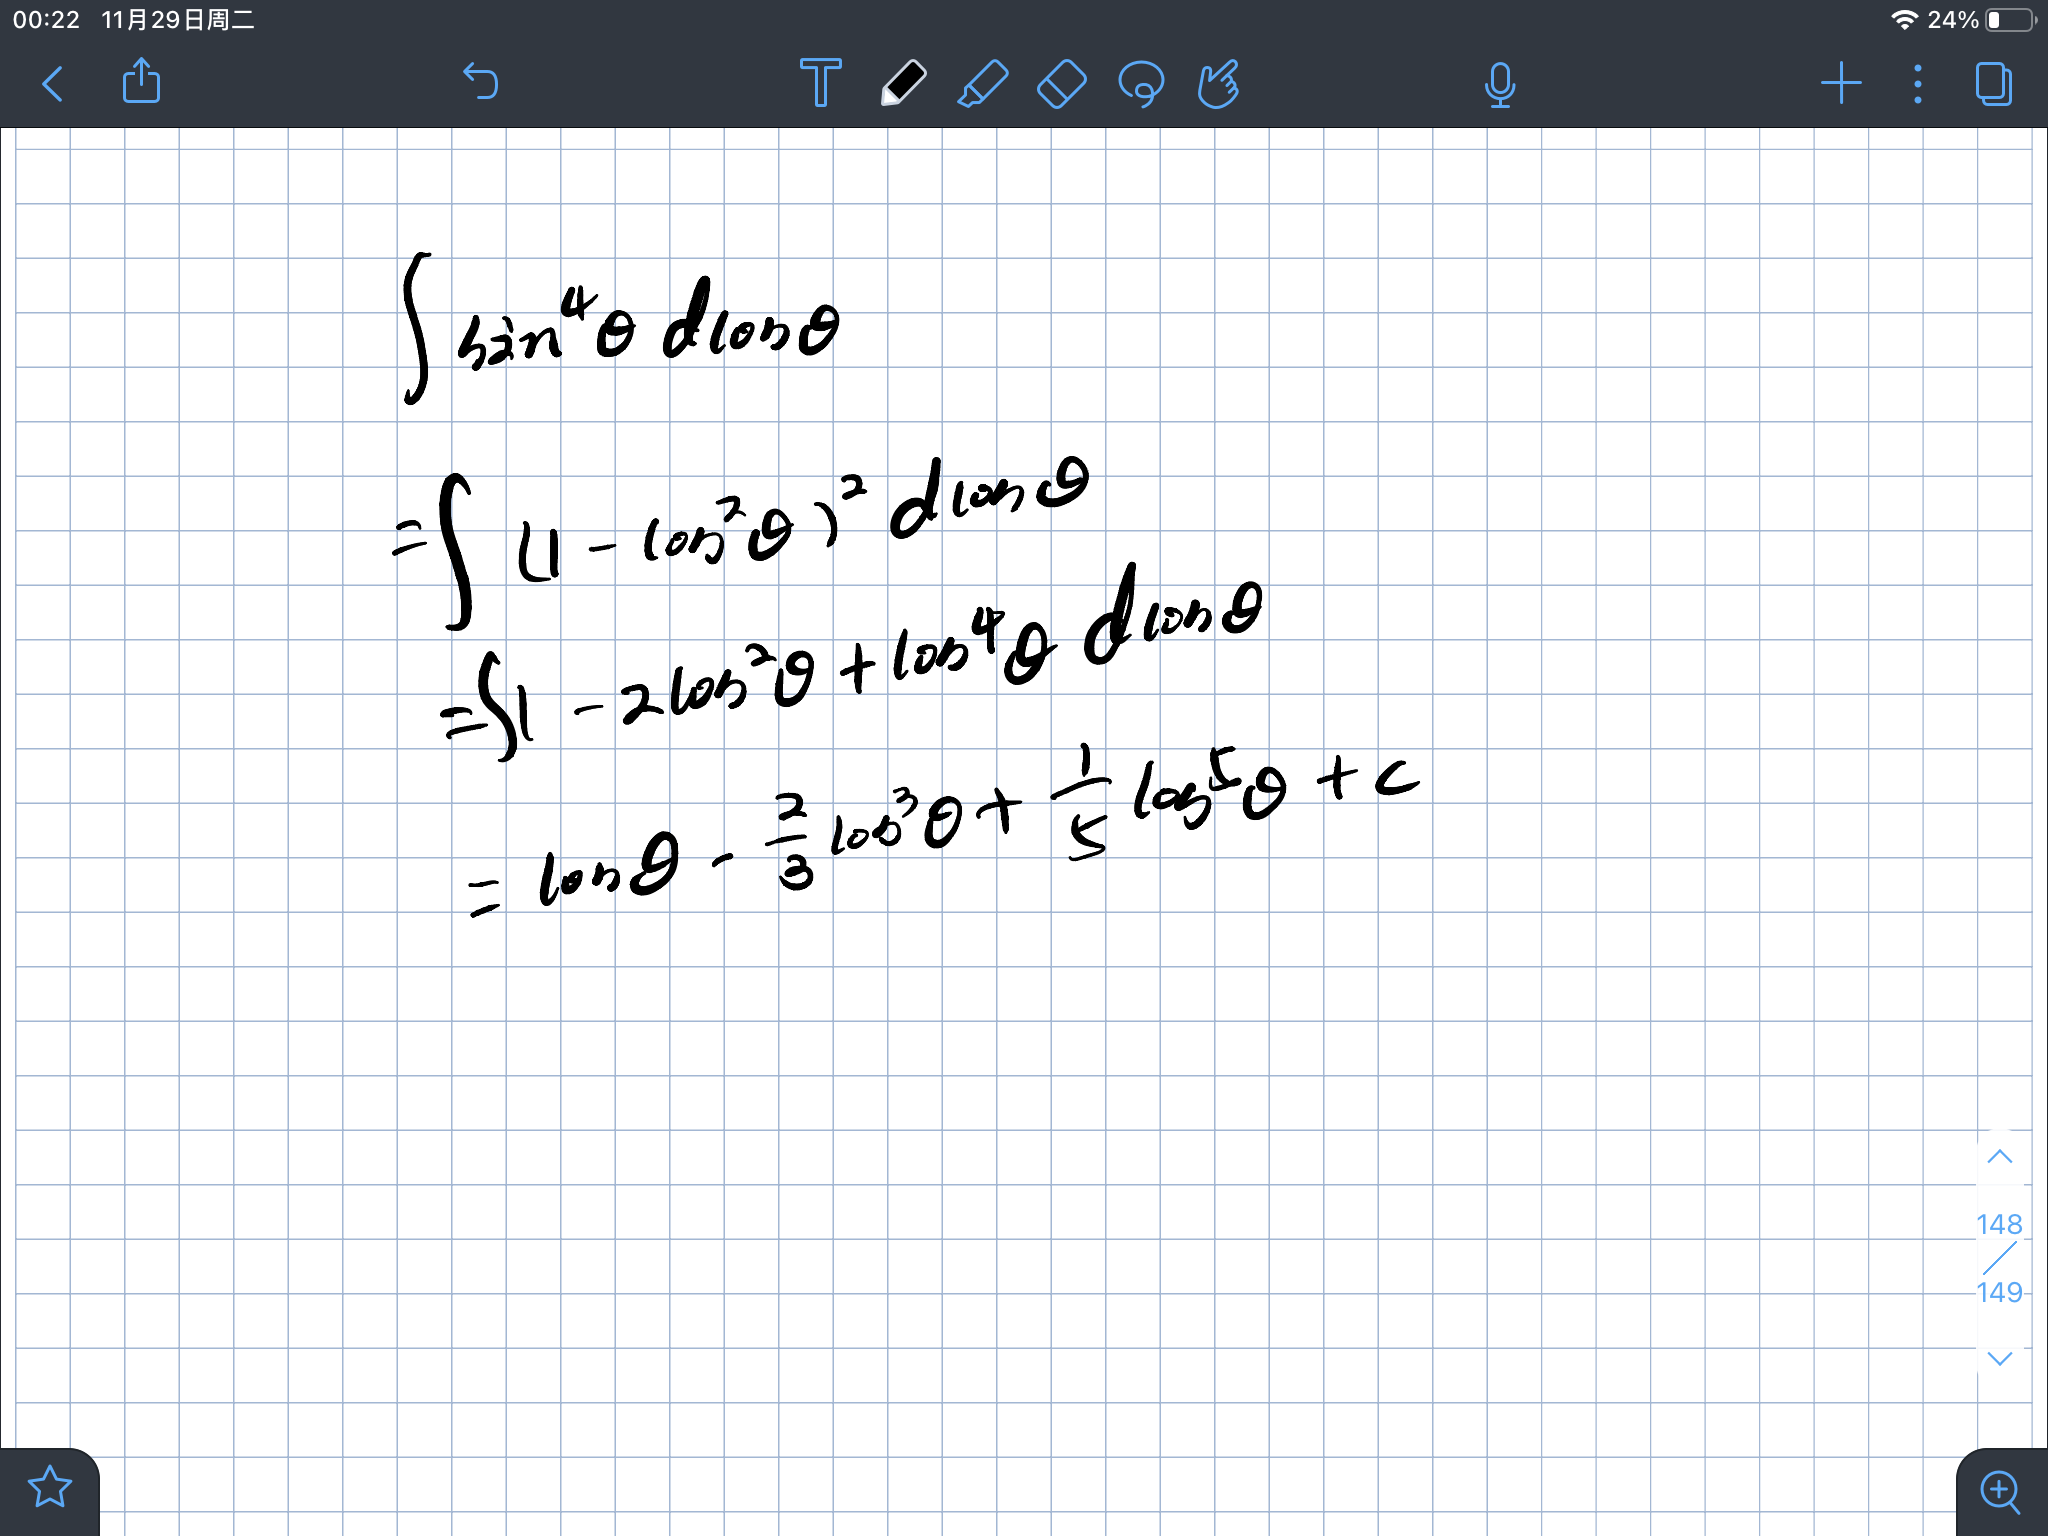 00:22 11月29日周二 24%
T
∫ sin⁴θ dcosθ
= ∫ (1 - cos²θ)² dcosθ
= ∫ 1 - 2cos²θ + cos⁴θ dcosθ
= cosθ - 2/3 cos³θ + 1/5 cos⁵θ + c
148
/
149